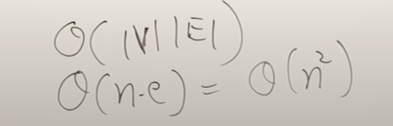 O(|V||E|)
O(n-e) = O(n²)